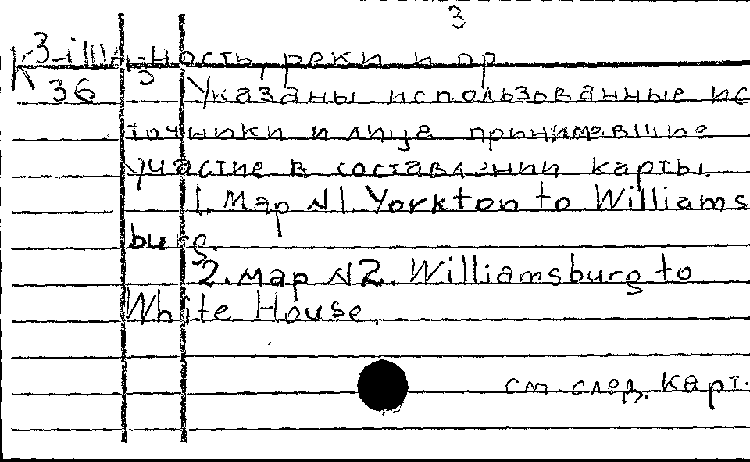 3
К 3-III/1-ность, реки и пр
36 3 Указаны использованные ис
точники и лица принимавшие
участие в составлении карты.
1. Map N1. Yorkton to Williams
burg.
2. Map N2. Williamsburg to
White House.
см. след. карт.